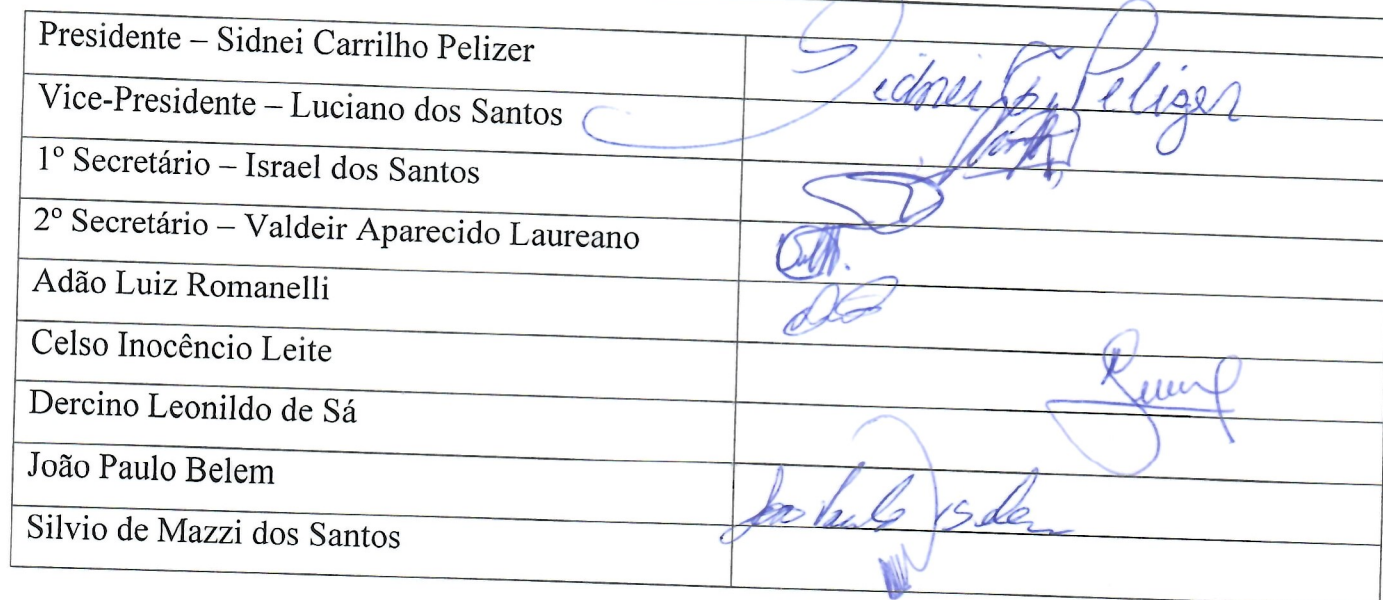 Presidente – Sidnei Carrilho Pelizer
Sidnei C. Pelizer
Vice-Presidente – Luciano dos Santos
1º Secretário – Israel dos Santos
2º Secretário – Valdeir Aparecido Laureano
Adão Luiz Romanelli
Celso Inocêncio Leite
Dercino Leonildo de Sá
João Paulo Belem
João Paulo Belem
Silvio de Mazzi dos Santos